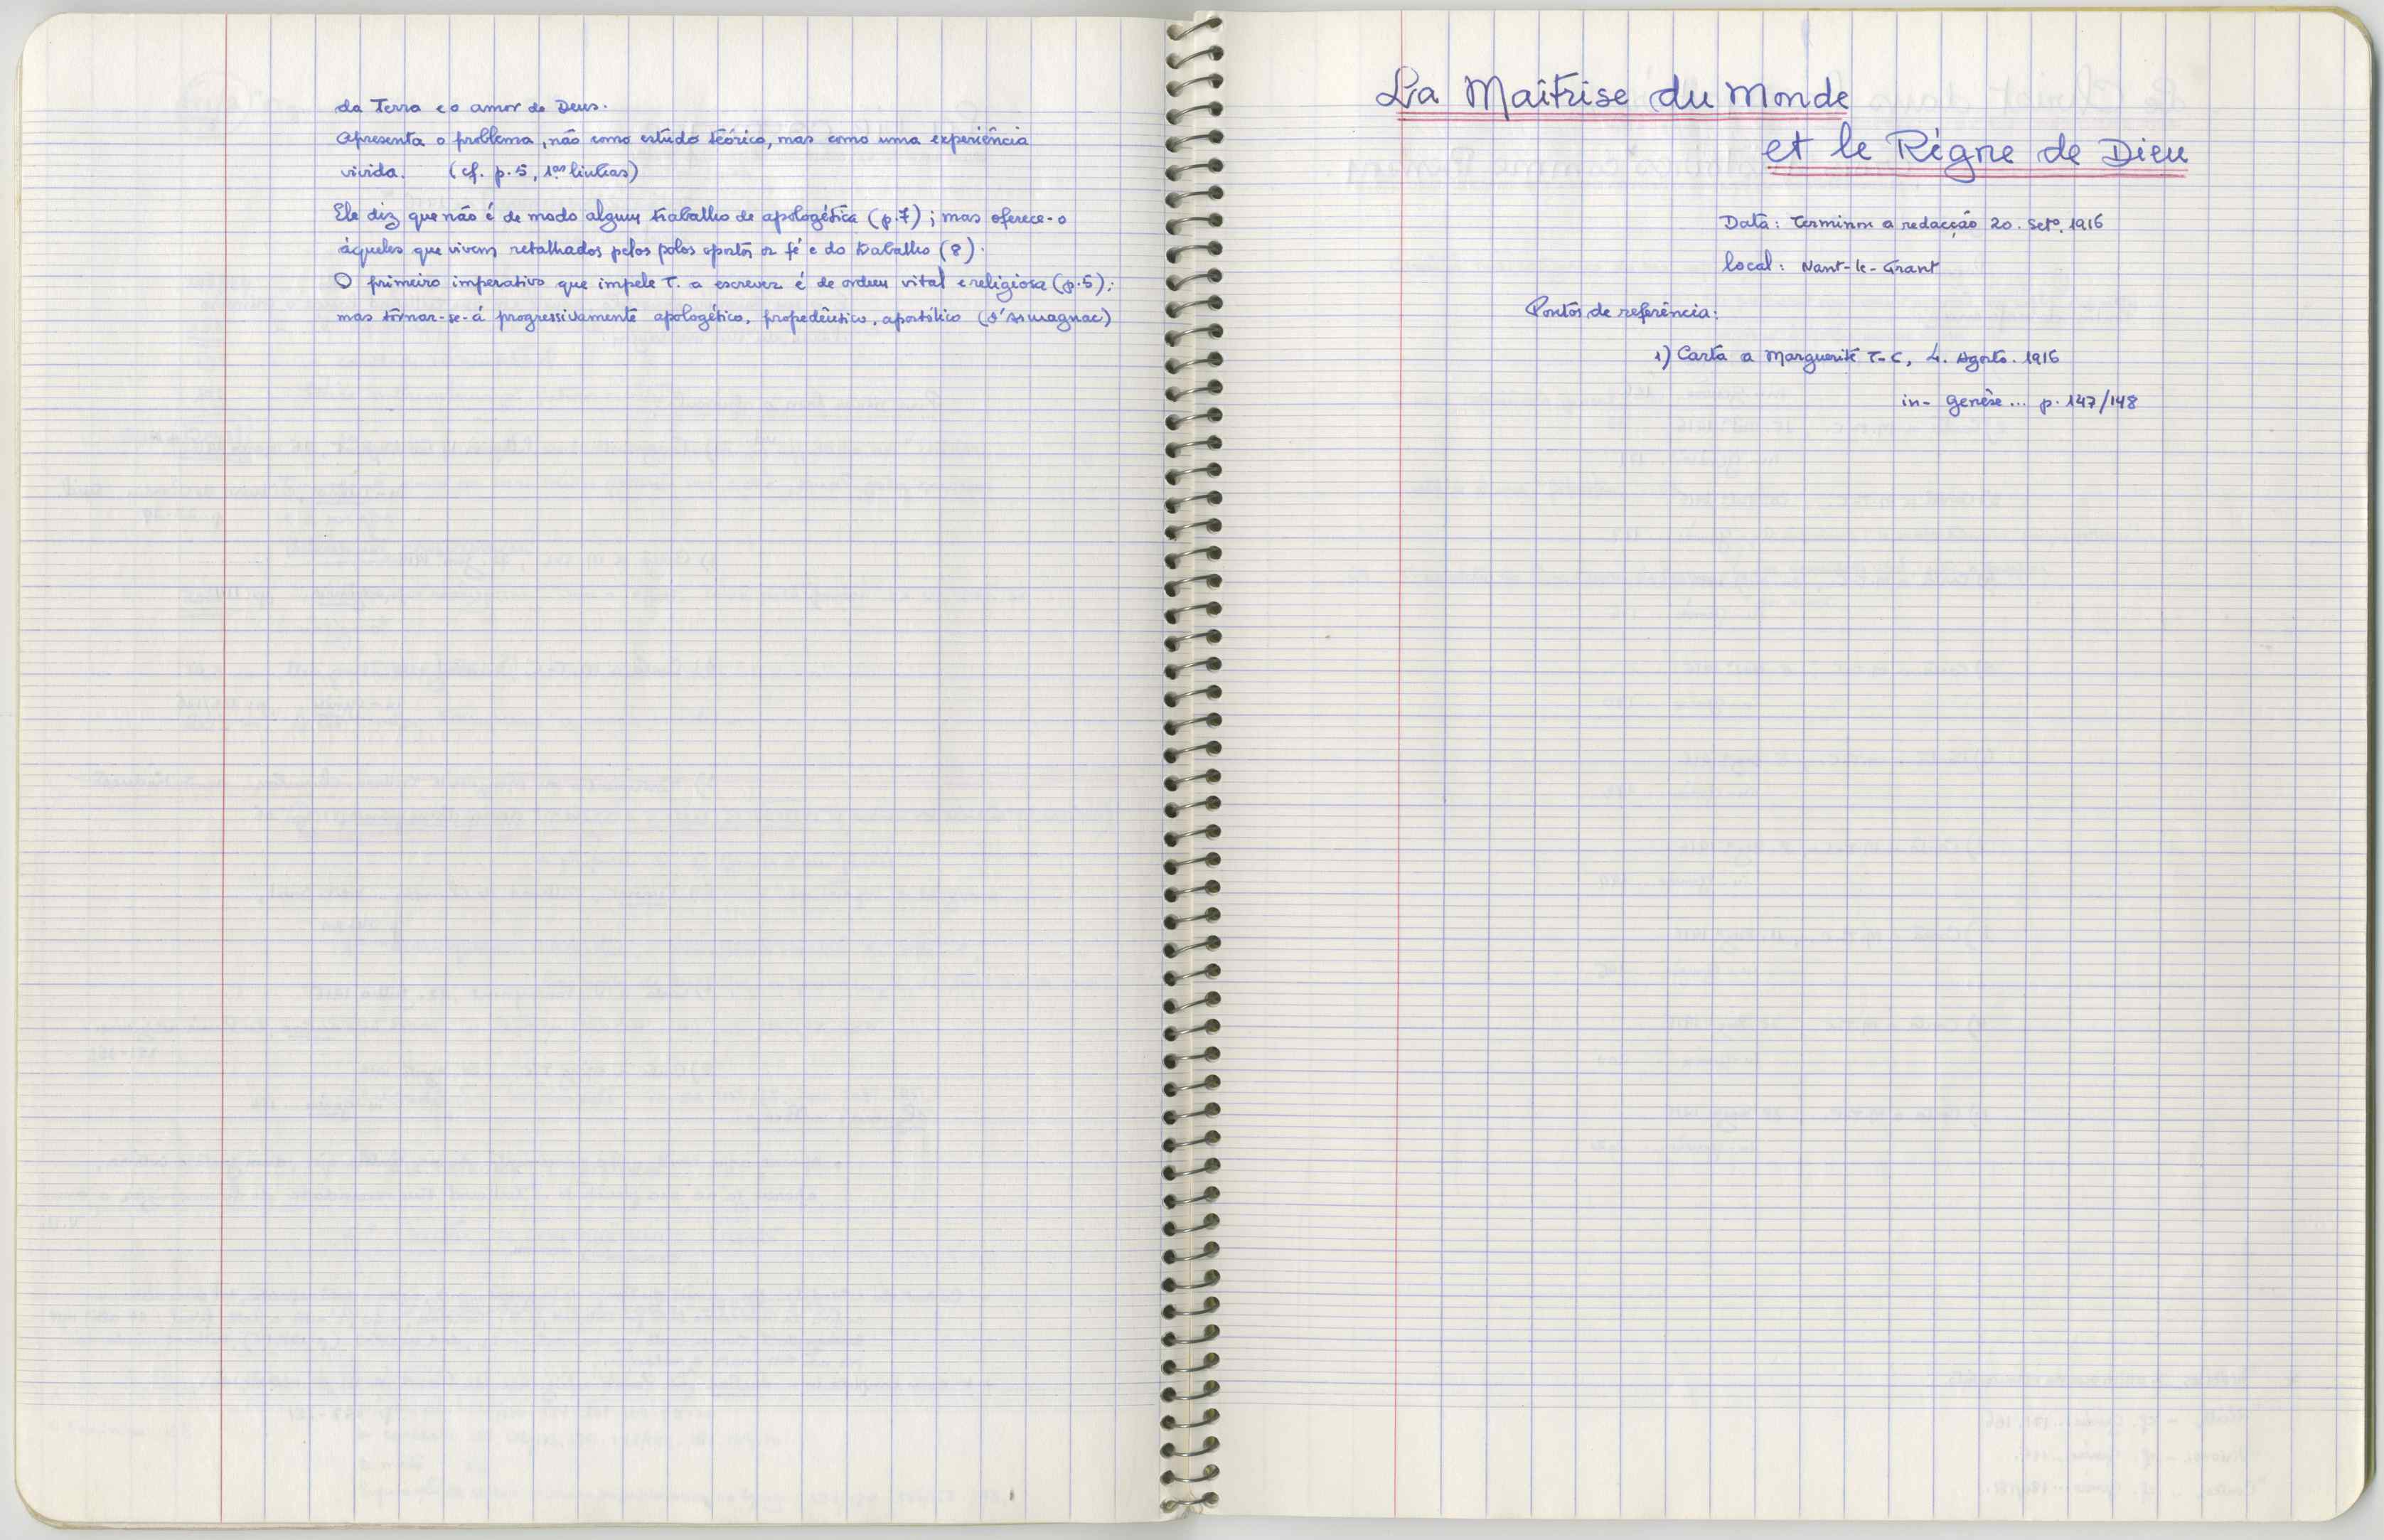 da Terra e o amor de Deus.
Apresenta o problema, não como estudo teórico, mas como uma experiência
vivida. (cf. p.5, 1as linhas)
Ele diz que não é de modo algum trabalho de apologética (p.7); mas oferece-o
àqueles que vivem retalhados pelos polos opostos da fé e do trabalho (8).
O primeiro imperativo que impele T. a escrever é de ordem vital e religiosa (p.5);
mas tornar-se-á progressivamente apologético, propedêutico, apostólico (d'Armagnac)
La Maîtrise du Monde
et le Règne de Dieu
Data: Terminou a redacção 20. Setº. 1916
local: Nant-le-Grant
Pontos de referência:
1) Carta a Marguerite T-C, 4. Agosto. 1916
in- Genèse... p. 147/148